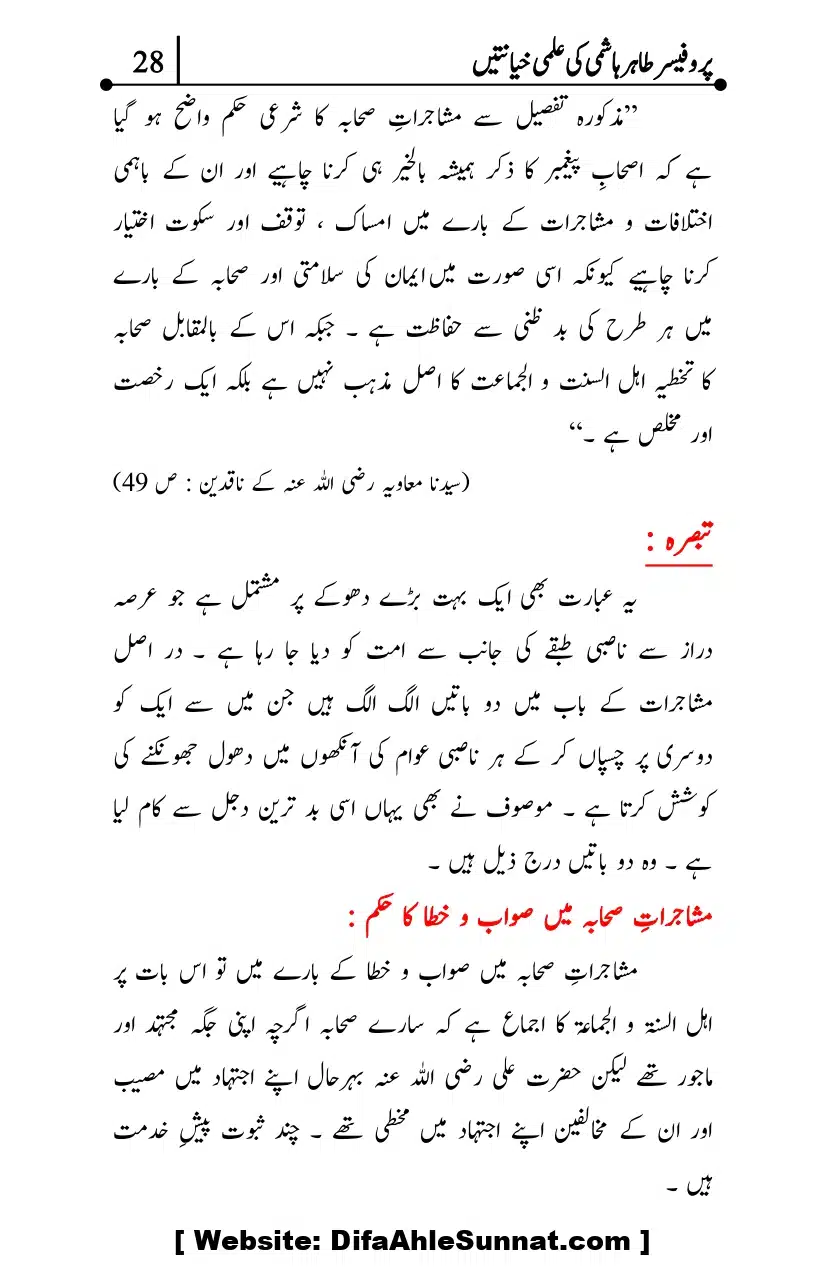 پروفیسر طاہر ہاشمی کی علمی خیانتیں 28
”مذکورہ تفصیل سے مشاجراتِ صحابہ کا شرعی حکم واضح ہو گیا
ہے کہ اصحابِ پیغمبر کا ذکر ہمیشہ بالخیر ہی کرنا چاہیے اور ان کے باہمی
اختلافات و مشاجرات کے بارے میں امساک ، توقف اور سکوت اختیار
کرنا چاہیے کیونکہ اسی صورت میں ایمان کی سلامتی اور صحابہ کے بارے
میں ہر طرح کی بد ظنی سے حفاظت ہے ۔ جبکہ اس کے بالمقابل صحابہ
کا تخطیہ اہل السنت و الجماعت کا اصل مذہب نہیں ہے بلکہ ایک رخصت
اور مخلص ہے ۔“
(سیدنا معاویہ رضی اللہ عنہ کے ناقدین : ص 49)
تبصرہ :
یہ عبارت بھی ایک بہت بڑے دھوکے پر مشتمل ہے جو عرصہ
دراز سے ناصبی طبقے کی جانب سے امت کو دیا جا رہا ہے ۔ در اصل
مشاجرات کے باب میں دو باتیں الگ الگ ہیں جن میں سے ایک کو
دوسری پر چسپاں کر کے ہر ناصبی عوام کی آنکھوں میں دھول جھونکنے کی
کوشش کرتا ہے ۔ موصوف نے بھی یہاں اسی بد ترین دجل سے کام لیا
ہے ۔ وہ دو باتیں درج ذیل ہیں ۔
مشاجراتِ صحابہ میں صواب و خطا کا حکم :
مشاجراتِ صحابہ میں صواب و خطا کے بارے میں تو اس بات پر
اہل السنۃ و الجماعۃ کا اجماع ہے کہ سارے صحابہ اگرچہ اپنی جگہ مجتہد اور
ماجور تھے لیکن حضرت علی رضی اللہ عنہ بہرحال اپنے اجتہاد میں مصیب
اور ان کے مخالفین اپنے اجتہاد میں مخطی تھے ۔ چند ثبوت پیشِ خدمت
ہیں ۔
[ Website: DifaAhleSunnat.com ]